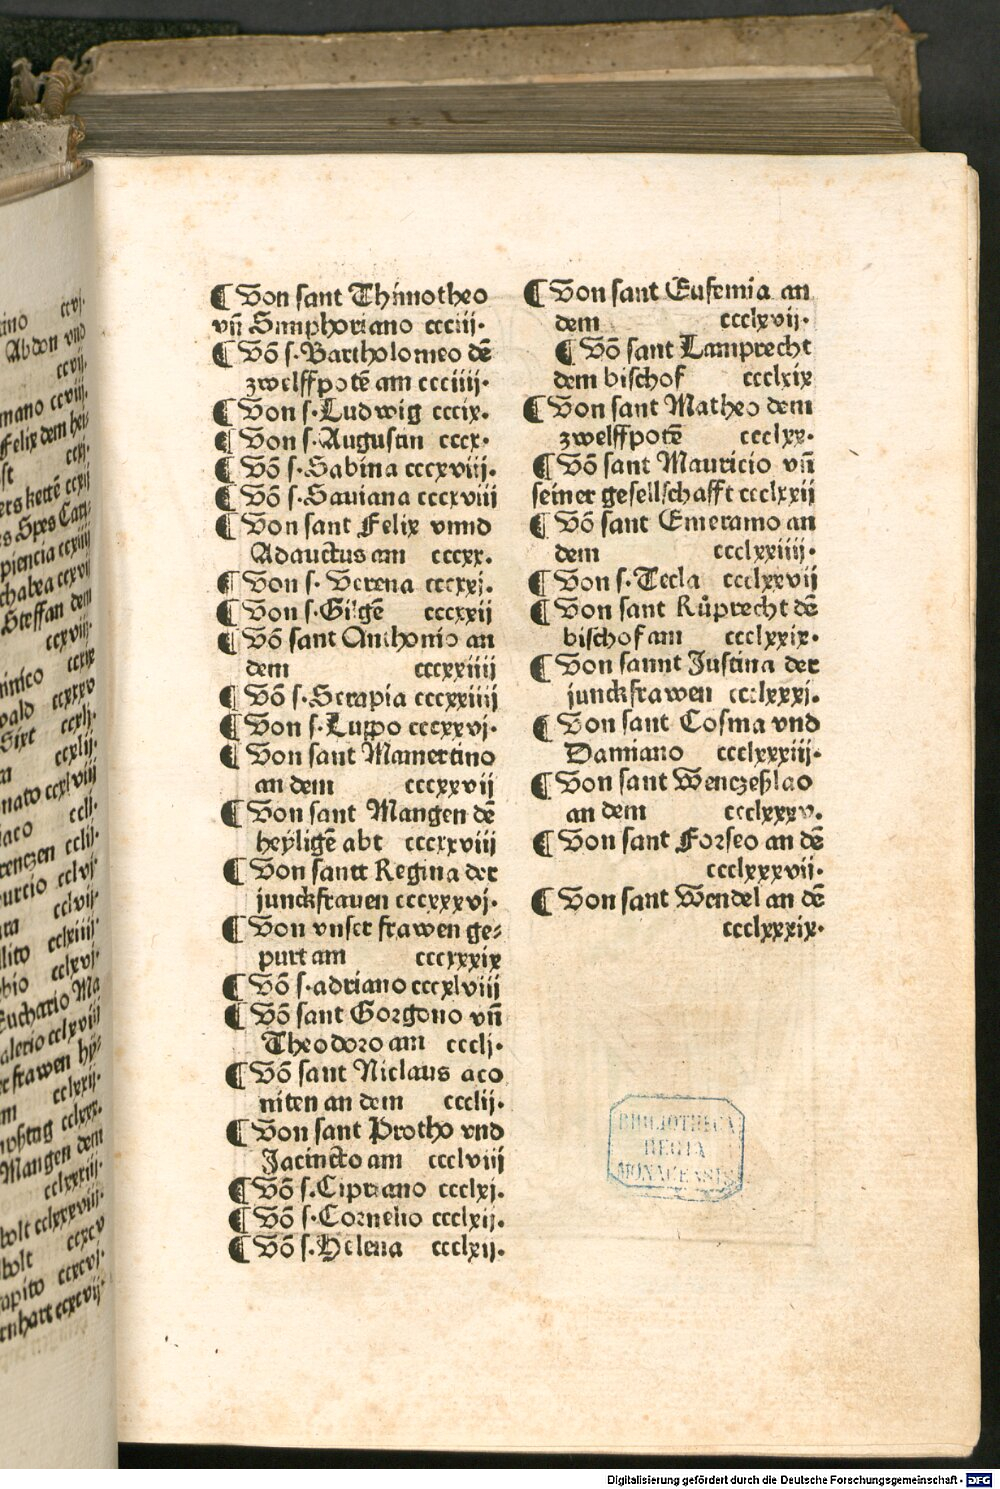 ¶ Von sant Thimotheo
vñ Simphoriano ccciij.
¶ Vō s. Bartholomeo dē
zwelffpotē am ccciiij.
¶ Von s. Ludwig cccix.
¶ Von s. Augustin cccx.
¶ Vō s. Sabina cccxviij.
¶ Vō s. Saviana cccxviij
¶ Von sant Felix vnnd
Adauctus am cccxx.
¶ Von s. Verena cccxxj.
¶ Von s. Gilgē cccxxij
¶ Vō sant Anthonio an
dem cccxxiiij
¶ Vō s. Serapia cccxxiiij
¶ Von s. Luppo cccxxvj.
¶ Von sant Mamertino
an dem cccxxvij
¶ Von sant Mangen dē
heyligē abt cccxxviij
¶ Von santt Regina der
junckfrauen cccxxxvj.
¶ Von vnser frawen ge⸗
purt am cccxxxix
¶ Vō s. adriano cccxlviij
¶ Vō sant Gorgono vñ
Theodoro am ccclj.
¶ Vō sant Niclaus aco
niten an dem ccclij.
¶ Von sant Protho vnd
Jacincto am ccclviij
¶ Vō s. Cipriano ccclxj.
¶ Vō s. Cornelio ccclxij.
¶ Vō s. Helena ccclxij.
¶ Von sant Eufemia an
dem ccclxvij.
¶ Vō sant Lamprecht
dem bischof ccclxix
¶ Von sant Matheo dem
zwelffpotē ccclxx.
¶ Vō sant Mauricio vñ
seiner gesellschafft ccclxxij
¶ Vō sant Emeramo an
dem ccclxxiiij.
¶ Von s. Tecla ccclxxvij
¶ Von sant Růprecht dē
bischof am ccclxxix.
¶ Von sannt Justina der
junckfrawen ccclxxxj.
¶ Von sant Cosma vnd
Damiano ccclxxxiij.
¶ Von sant Wenczeßlao
an dem ccclxxxv.
¶ Von sant Forseo an dē
ccclxxxvij.
¶ Von sant Wendel an dē
ccclxxxix.
BIBLIOTHECA
REGIA
MONACENSIS
Digitalisierung gefördert durch die Deutsche Forschungsgemeinschaft - DFG